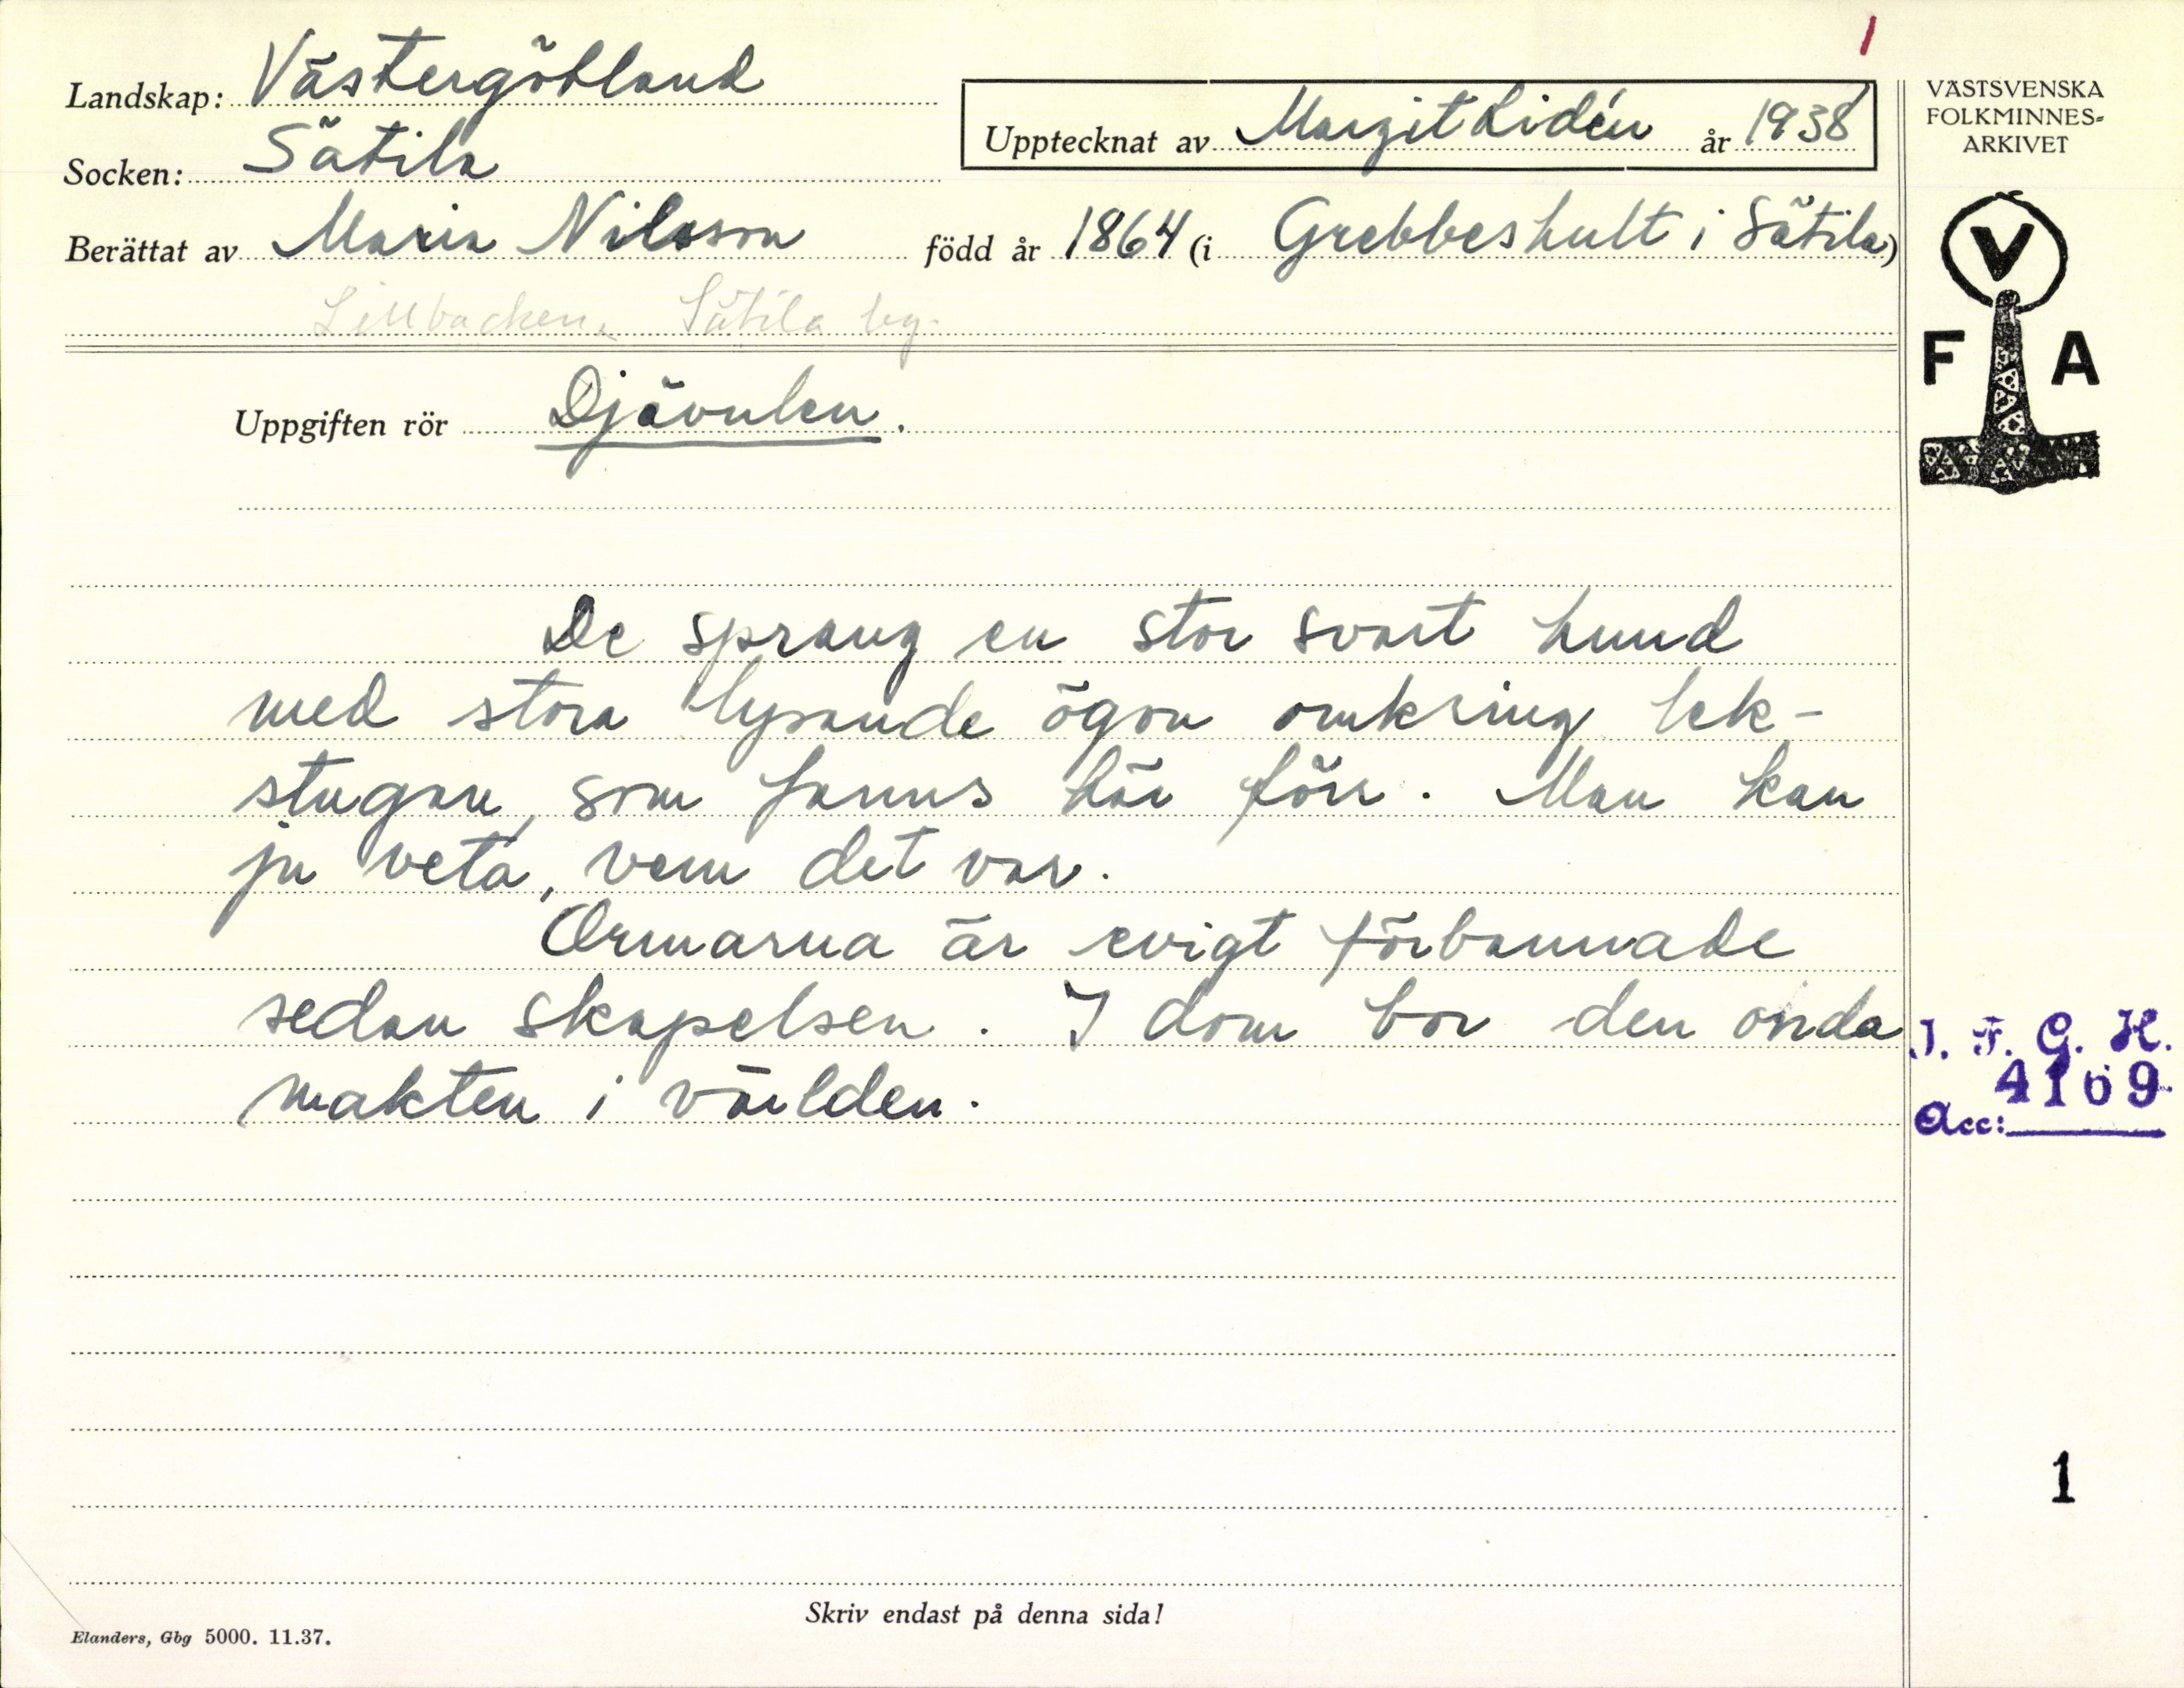 1
Landskap: Västergötland
Upptecknat av Margit Lidén år 1938
Socken: Sätila
Berättat av Maria Nilsson född år 1864 (i Grebbeshult i Sätila)
Lillbacken, Sätila by.
Uppgiften rör Djävulen.
De sprang en stor svart hund
med stora lysande ögon omkring lek-
stugan, som fanns här förr. Man kan
ju veta, vem det var.
Ormarna är evigt förbannade
sedan skapelsen. I dom bor den onda
makten i världen.
Skriv endast på denna sida!
Elanders, Gbg 5000. 11.37.
VÄSTSVENSKA
FOLKMINNES-
ARKIVET
V
F A
I. F. G. H.
4109
Acc:
1